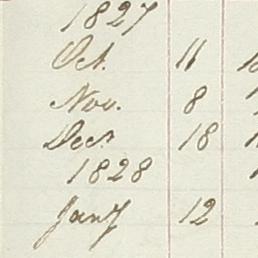 1827
Oct. 11
Nov. 8
Decr 18
1828
Jany 12